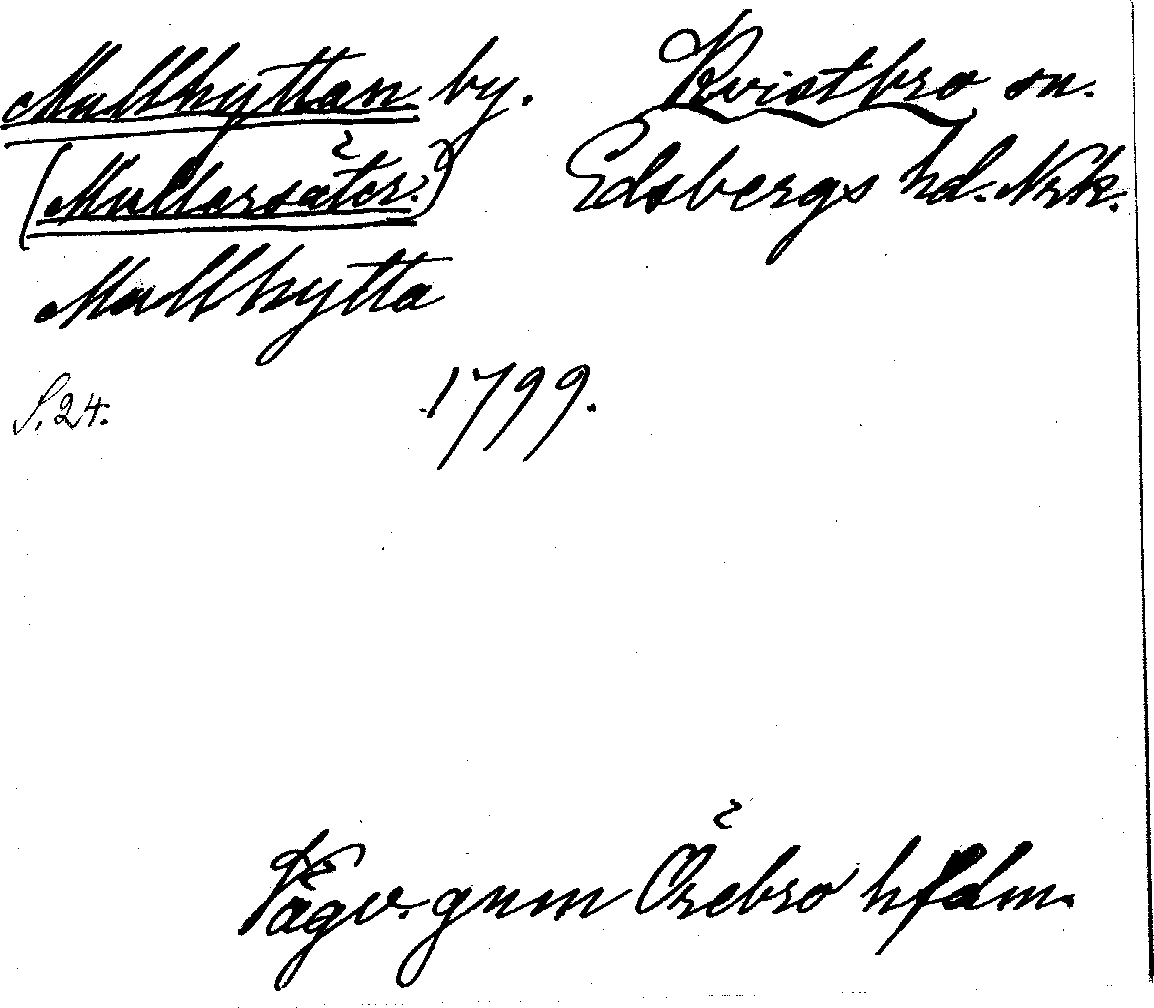 Mullhyttan by. Kvistbro sn.
(Mullersäter.) Edsbergs hd. Nrk.
Mullhytta
S. 24. 1799.
Vägv. gnm Örebro hfdm.